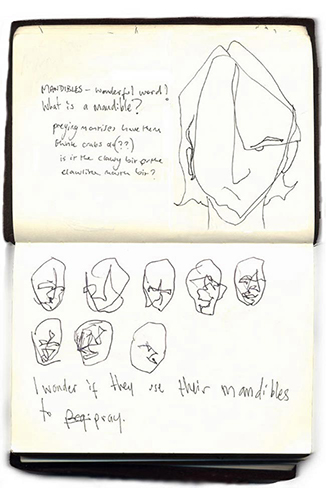 MANDIBLES - wonderful word!
What is a mandible?
preying mantises have them
think crabs do (??)
is it the clawy bit or the
clawlike mouth bit?
I wonder if they use their mandibles
to pray.